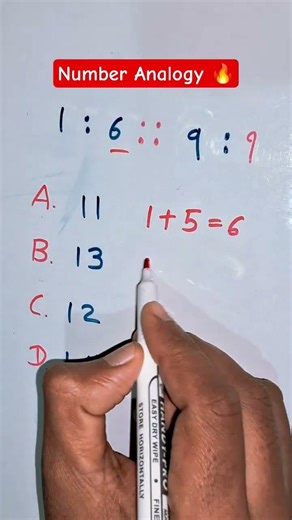 Number Analogy 🔥
1 : 6 :: 9 : 9
A. 11
1+5=6
B. 13
C. 12
D
EASY DRY WIPE
STORE HORIZONTALLY
FINE